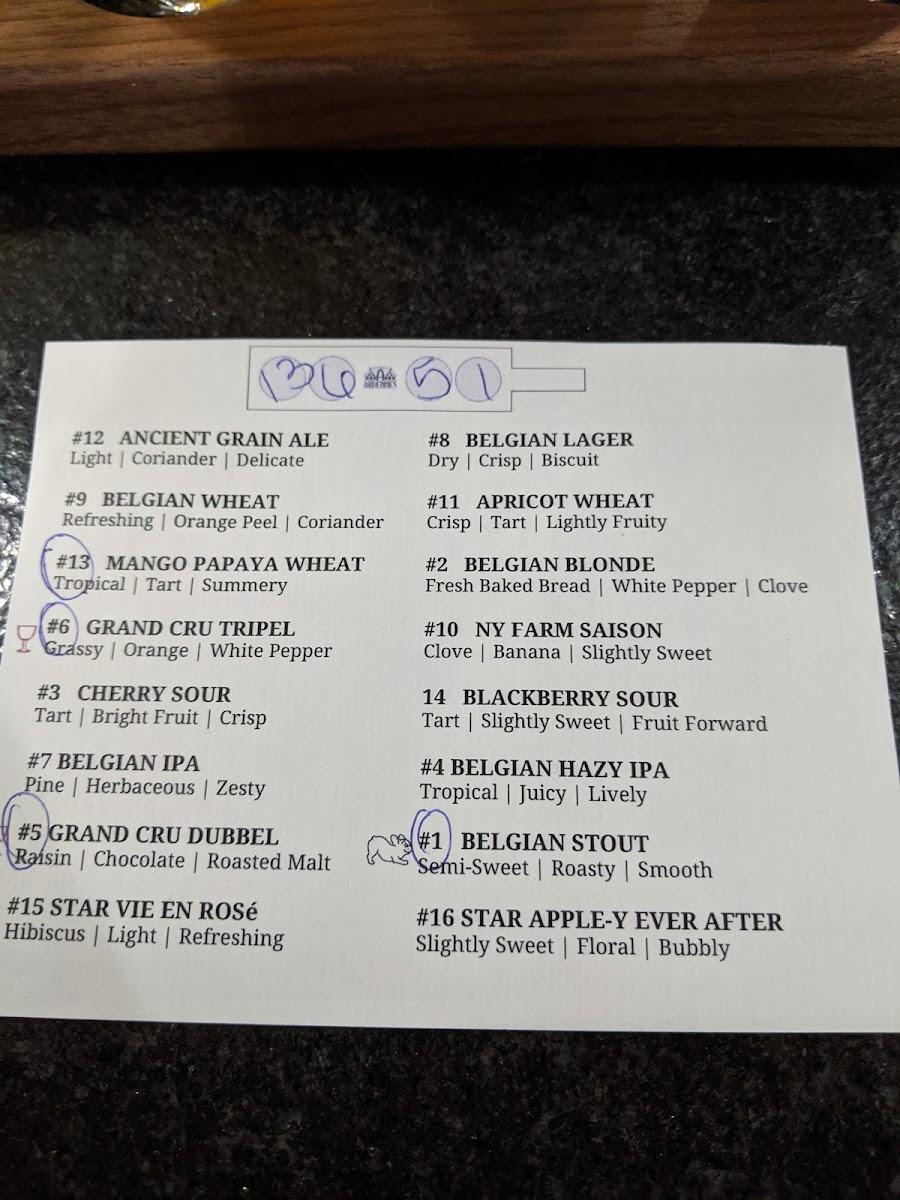 13 6 ARDENNES 5 1
#12 ANCIENT GRAIN ALE
Light | Coriander | Delicate
#9 BELGIAN WHEAT
Refreshing | Orange Peel | Coriander
#13 MANGO PAPAYA WHEAT
Tropical | Tart | Summery
#6 GRAND CRU TRIPEL
Grassy | Orange | White Pepper
#3 CHERRY SOUR
Tart | Bright Fruit | Crisp
#7 BELGIAN IPA
Pine | Herbaceous | Zesty
#5 GRAND CRU DUBBEL
Raisin | Chocolate | Roasted Malt
#15 STAR VIE EN ROSé
Hibiscus | Light | Refreshing
#8 BELGIAN LAGER
Dry | Crisp | Biscuit
#11 APRICOT WHEAT
Crisp | Tart | Lightly Fruity
#2 BELGIAN BLONDE
Fresh Baked Bread | White Pepper | Clove
#10 NY FARM SAISON
Clove | Banana | Slightly Sweet
14 BLACKBERRY SOUR
Tart | Slightly Sweet | Fruit Forward
#4 BELGIAN HAZY IPA
Tropical | Juicy | Lively
#1 BELGIAN STOUT
Semi-Sweet | Roasty | Smooth
#16 STAR APPLE-Y EVER AFTER
Slightly Sweet | Floral | Bubbly